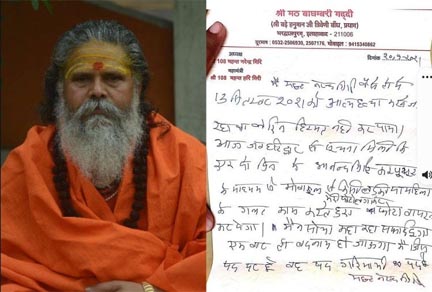 श्री मठ बाघम्बरी गद्दी
(श्री बड़े हनुमान जी त्रिवेणी बाँध, प्रयाग)
भरद्वाजपुरम्, इलाहाबाद - 211006
दूरभाष : 0532-2506930, 2507170, मोबाइल : 9415340862
अध्यक्ष
श्री 108 महन्त नरेन्द्र गिरि
महामंत्री
श्री 108 महन्त हरि गिरि
मैं महन्त नरेन्द्र गिरि वैसे तो मैं
13 सितम्बर 2021 को आत्महत्या करने
जा रहा था लेकिन हिम्मत नहीं कर पाया।
आज जब हरिद्वार से सूचना मिली कि
एक दो दिन में आनन्द गिरि कम्प्यूटर
के माध्यम से मोबाइल से किसी लड़की या महिला
के गलत काम करते हुए फोटो वायरल
कर देगा। मैंने सोचा कहाँ कहाँ सफाई दूंगा
एक बार तो बदनाम हो जाऊगा मैं जिस
पद पर हूं वह पद गरिमामयी पद है
महन्त नरेन्द्र गिरि